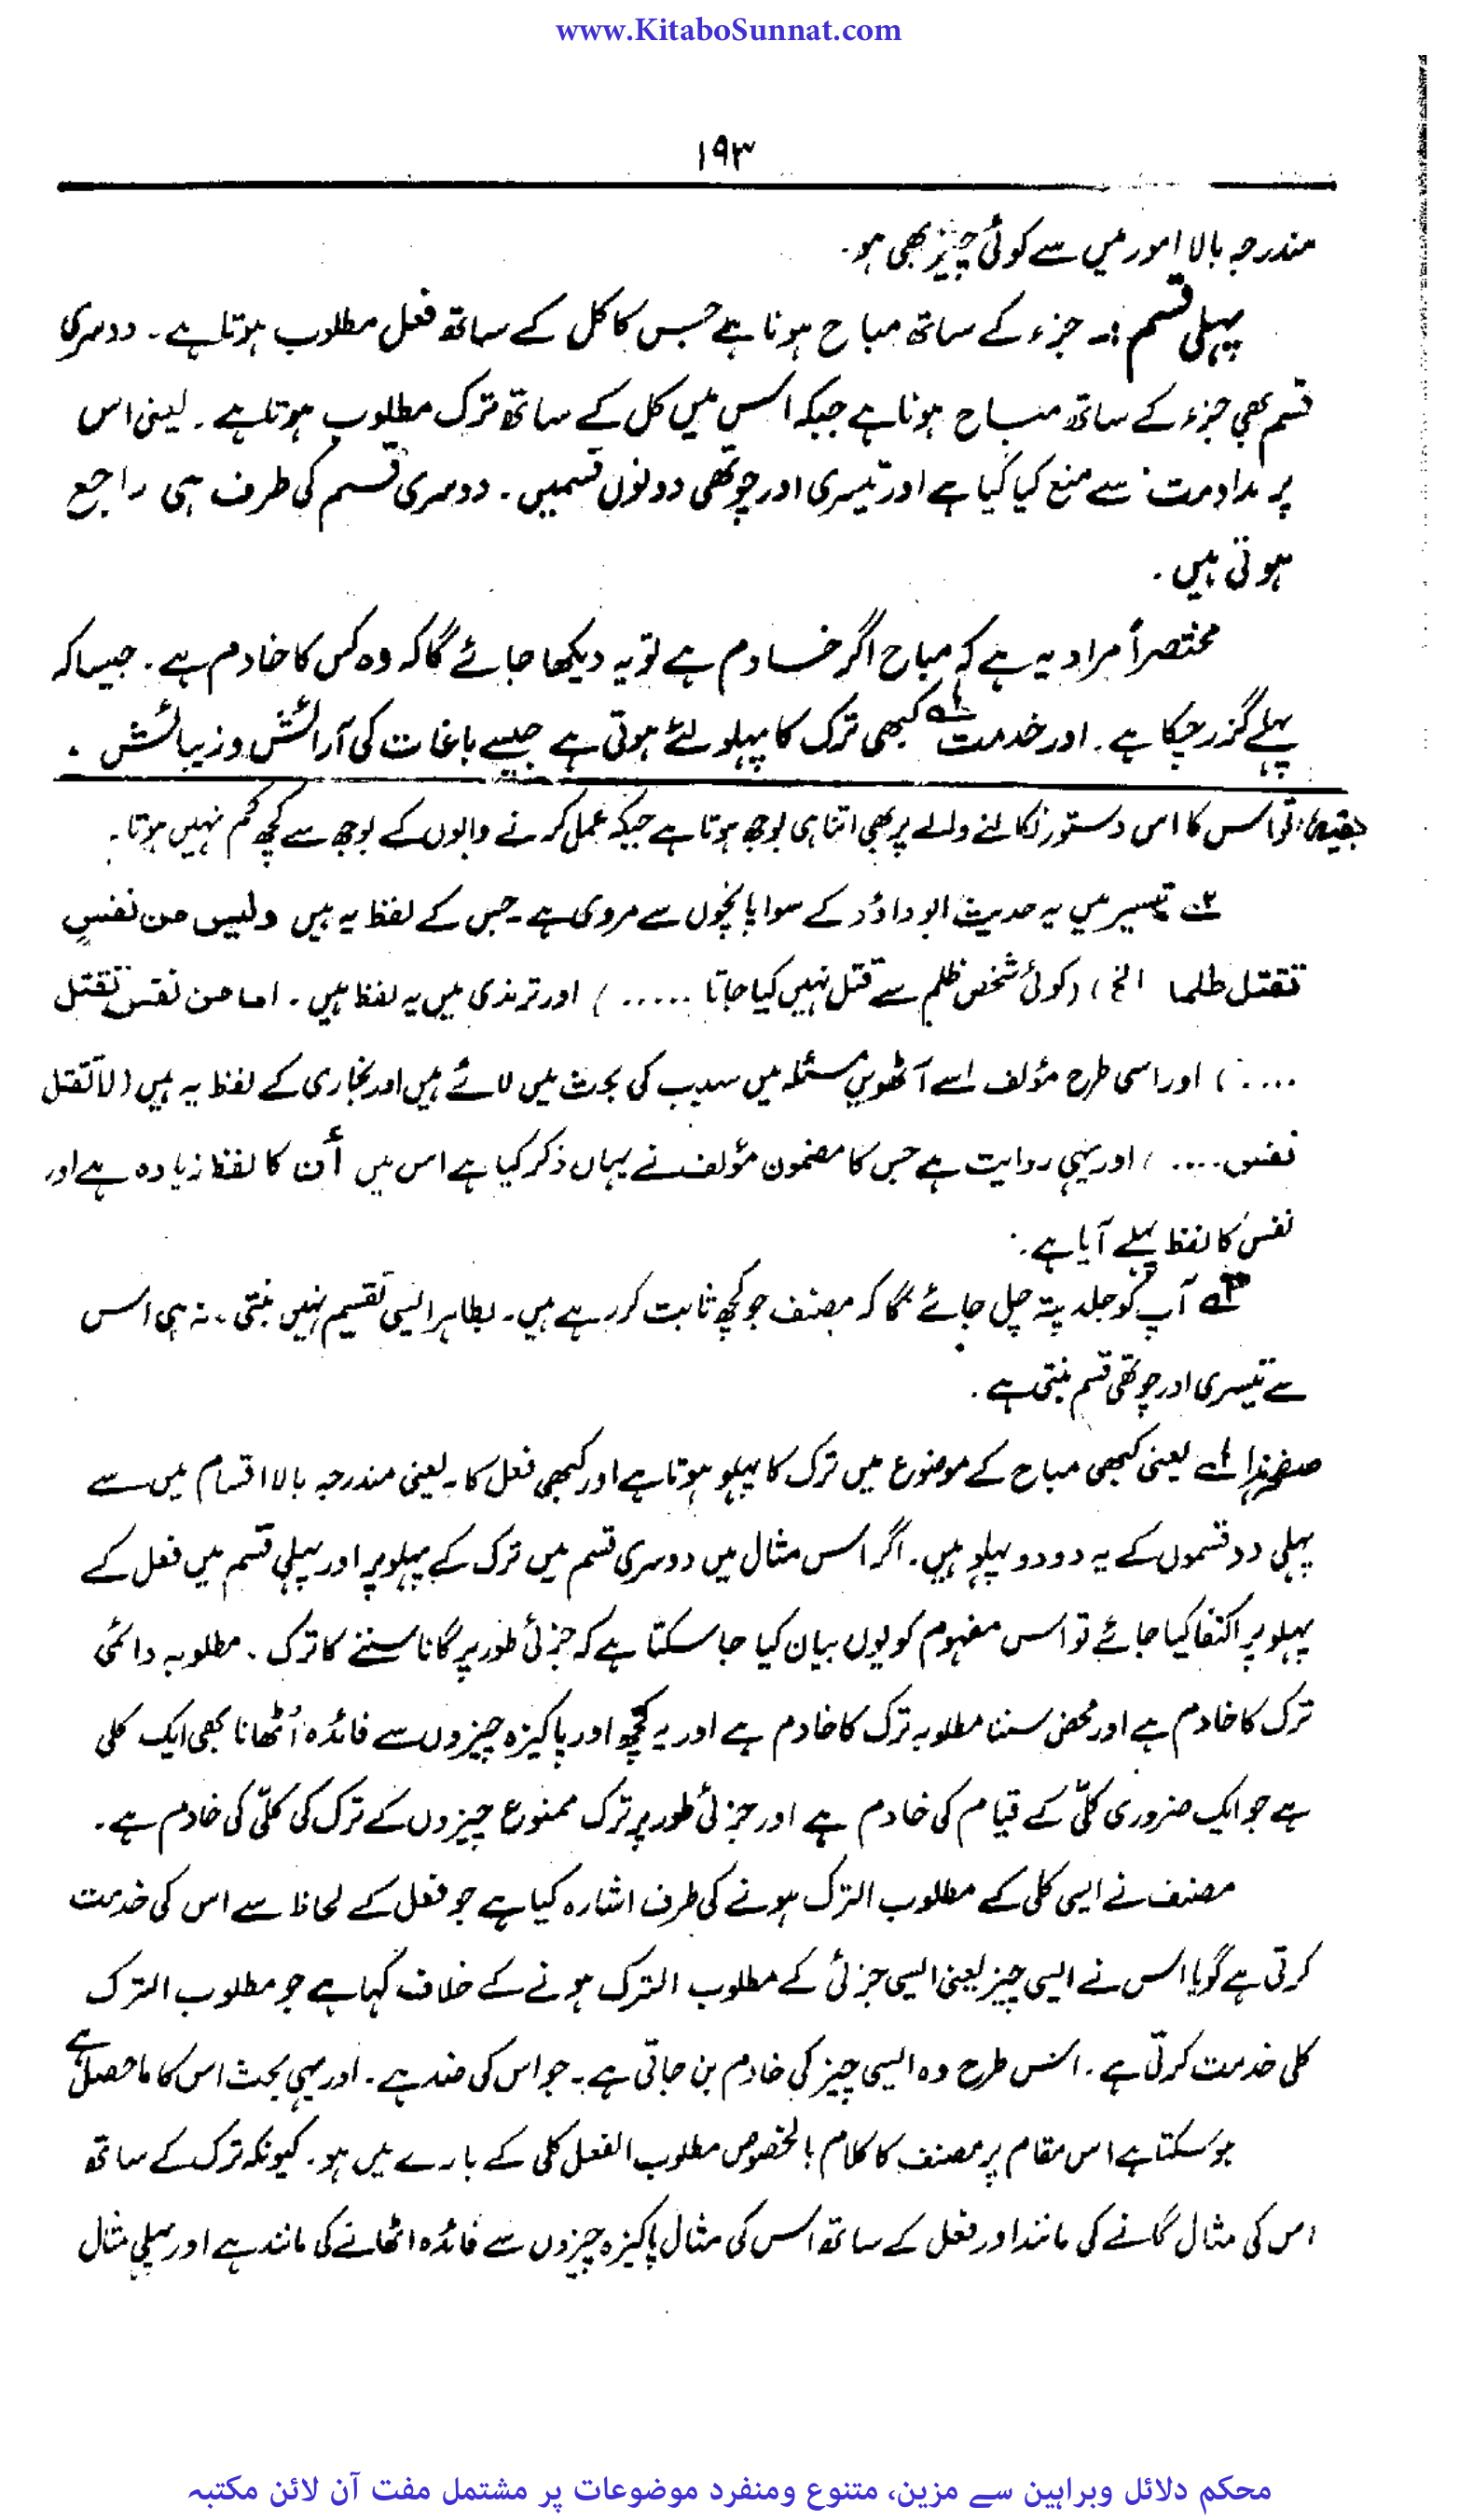 www.KitaboSunnat.com
۱۹۳
مندرجہ بالا امور میں سے کوئی چیز بھی ہو۔
پہلی قسم :۔ جزء کے ساتھ مباح ہونا ہے جس کا کل کے ساتھ فعل مطلوب ہوتا ہے ۔ دوسری
قسم بھی جزء کے ساتھ مباح ہونا ہے جبکہ اس میں کل کے ساتھ ترک مطلوب ہوتا ہے ۔ لیعنی اس
پر مداومت سے منع کیا گیا ہے اور تیسری اور چوتھی دونوں قسمیں ۔ دوسری قسم کی طرف ہی راجع
ہوتی ہیں ۔
مختصراً مراد یہ ہے کہ مباح اگر خادم ہے تو یہ دیکھا جائے گا کہ وہ کس کا خادم ہے ۔ جیسا کہ
پہلے گزر چکا ہے ۔ اور خدمت ۱ے کبھی ترک کا پہلو لئے ہوتی ہے جیسے باغات کی آرائش و زیبائش ۔
بقیہ، تو اس کا اس دستور نکالنے والے پر بھی اتنا ہی بوجھ ہوتا ہے جبکہ عمل کرنے والوں کے بوجھ سے کچھ کم نہیں ہوتا ۔
۲ے تیسیر میں یہ حدیث ابو داؤد کے سوا پانچوں سے مروی ہے ۔ جس کے لفظ یہ ہیں ولیس من نفسٍ
تقتل ظلما الخ ) (کوئی شخص ظلم سے قتل نہیں کیا جاتا ..... ) اور ترمذی میں یہ لفظ ہیں ۔ اما من نفس تقتل
.... ) اور اسی طرح مؤلف اسے آٹھویں مسئلہ میں سبب کی بحث میں لائے ہیں اور بخاری کے لفظ یہ ہیں (لا تقتل
نفس .... ) اور یہی روایت ہے جس کا مضمون مؤلف نے یہاں ذکر کیا ہے اس میں أن کا لفظ زیادہ ہے اور
نفس کا لفظ پہلے آیا ہے ۔
۳ے آپ کو جلد پتہ چل جائے گا کہ مصنف جو کچھ ثابت کر رہے ہیں ۔ بظاہر ایسی تقسیم نہیں بنتی ۔ نہ ہی اس
سے تیسری اور چوتھی قسم بنتی ہے ۔
صفحہ ہذا ۱ے لیعنی کبھی مباح کے موضوع میں ترک کا پہلو ہوتا ہے اور کبھی فعل کا ۔ لیعنی مندرجہ بالا اقسام میں سے
پہلی دو قسموں کے یہ دو دو پہلو ہیں ۔ اگر اس مثال میں دوسری قسم میں ترک کے پہلو پر اور پہلی قسم میں فعل کے
پہلو پر اکتفا کیا جائے تو اس مفہوم کو یوں بیان کیا جا سکتا ہے کہ جزئی طور پر گانا سننے کا ترک ۔ مطلوبہ دائمی
ترک کا خادم ہے اور محض سننا مطلوبہ ترک کا خادم ہے اور یہ کچھ اور پاکیزہ چیزوں سے فائدہ اُٹھانا بھی ایک کلی
ہے جو ایک ضروری کلّی کے قیام کی خادم ہے اور جزئی طور پر ترک ممنوع چیزوں کے ترک کی کلّی کی خادم ہے ۔
مصنف نے ایسی کلی کے مطلوب الترک ہونے کی طرف اشارہ کیا ہے جو فعل کے لحاظ سے اس کی خدمت
کرتی ہے گویا اس نے ایسی چیز لیعنی ایسی جزئی کے مطلوب الترک ہونے کے خلاف کہا ہے جو مطلوب الترک
کلی خدمت کرتی ہے ۔ اس طرح وہ ایسی چیز کی خادم بن جاتی ہے ۔ جو اس کی ضد ہے ۔ اور یہی بحث اس کا ماحصل ہے
ہو سکتا ہے اس مقام پر مصنف کا کلام بالخصوص مطلوب الفعل کلی کے بارے میں ہو ۔ کیونکہ ترک کے ساتھ
اس کی مثال گانے کی مانند اور فعل کے ساتھ اس کی مثال پاکیزہ چیزوں سے فائدہ اٹھانے کی مانند ہے اور پہلی مثال
محکم دلائل وبراہین سے مزین، متنوع ومنفرد موضوعات پر مشتمل مفت آن لائن مکتبہ